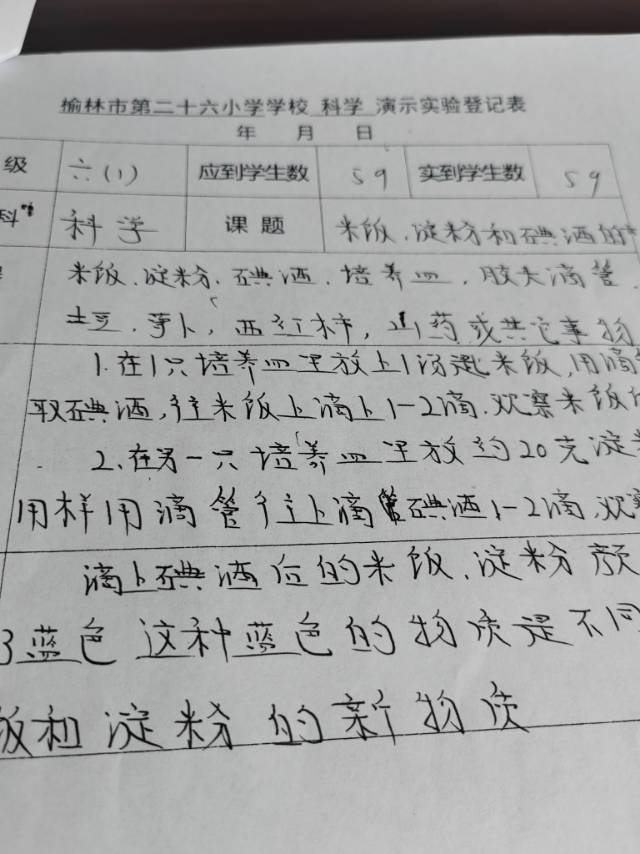 榆林市第二十六小学学校 科学 演示实验登记表
年 月 日
级 六(1) 应到学生数 59 实到学生数 59
科 科学 课题 米饭、淀粉和碘酒的
米饭、淀粉、碘酒、培养皿、胶头滴管、
土豆、萝卜,西红柿,山药或其它事物
1.在1只培养皿里放上1汤匙米饭,用滴
取碘酒,往米饭上滴上1-2滴.观察米饭
2.在另一只培养皿里放约20克淀
用样用滴管往上滴碘酒1-2滴,观
滴上碘酒后的米饭、淀粉颜
蓝色 这种蓝色的物质是不同
饭和淀粉的新物质